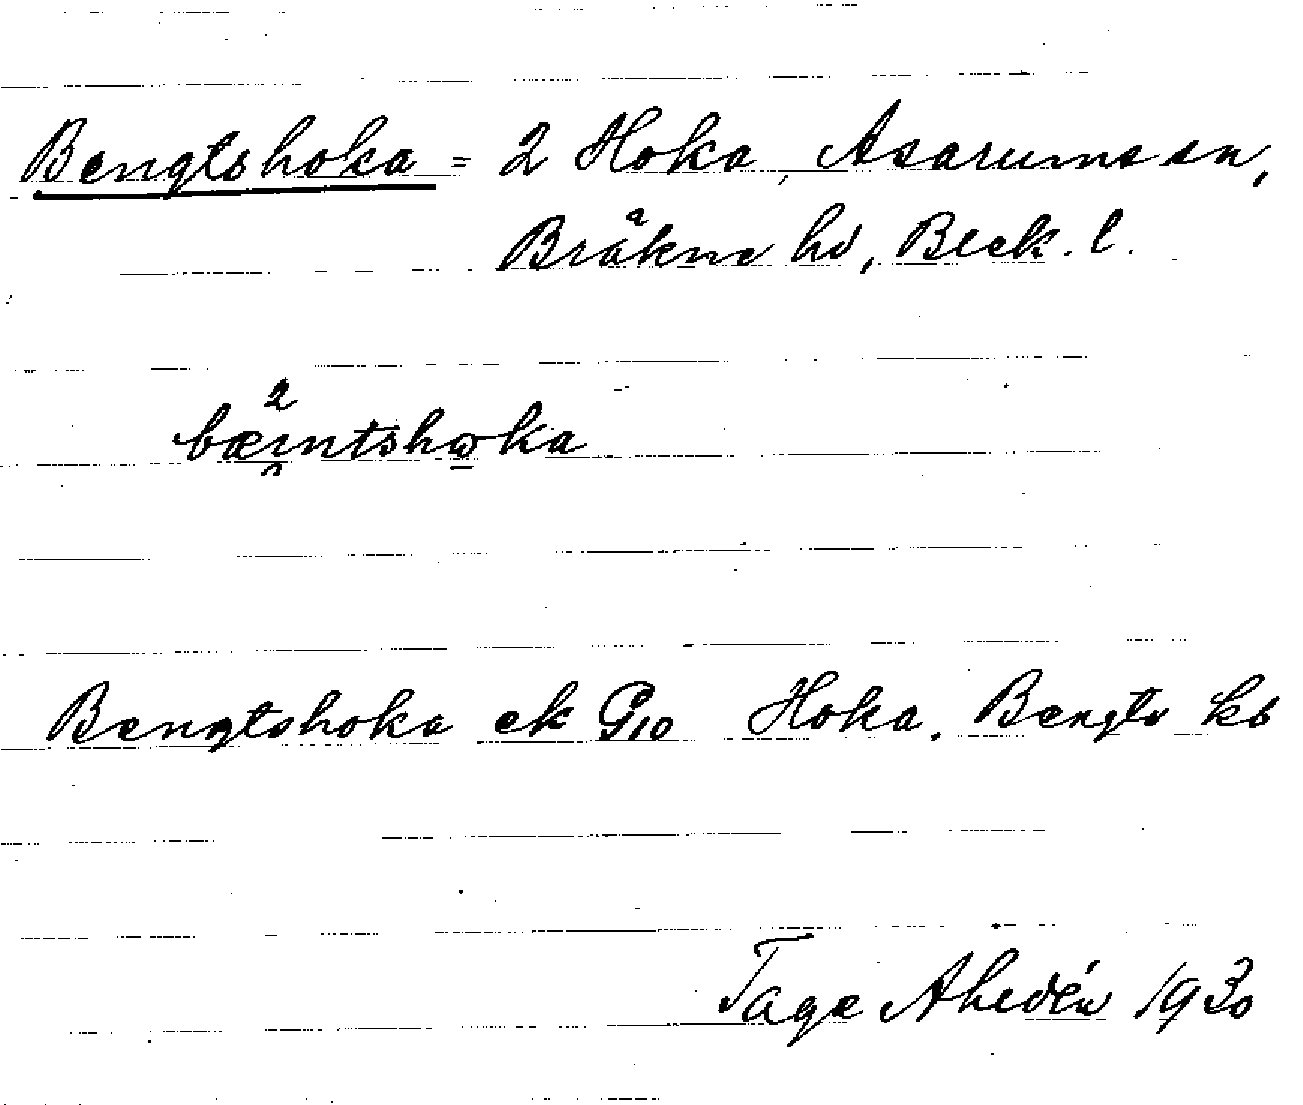 Bengtshoka = 2 Hoka, Asarums sn,
Bräkne hd, Blek. l.
Bengtshoka ek G10 Hoka. Bengts kb
Tage Ahldén 1930